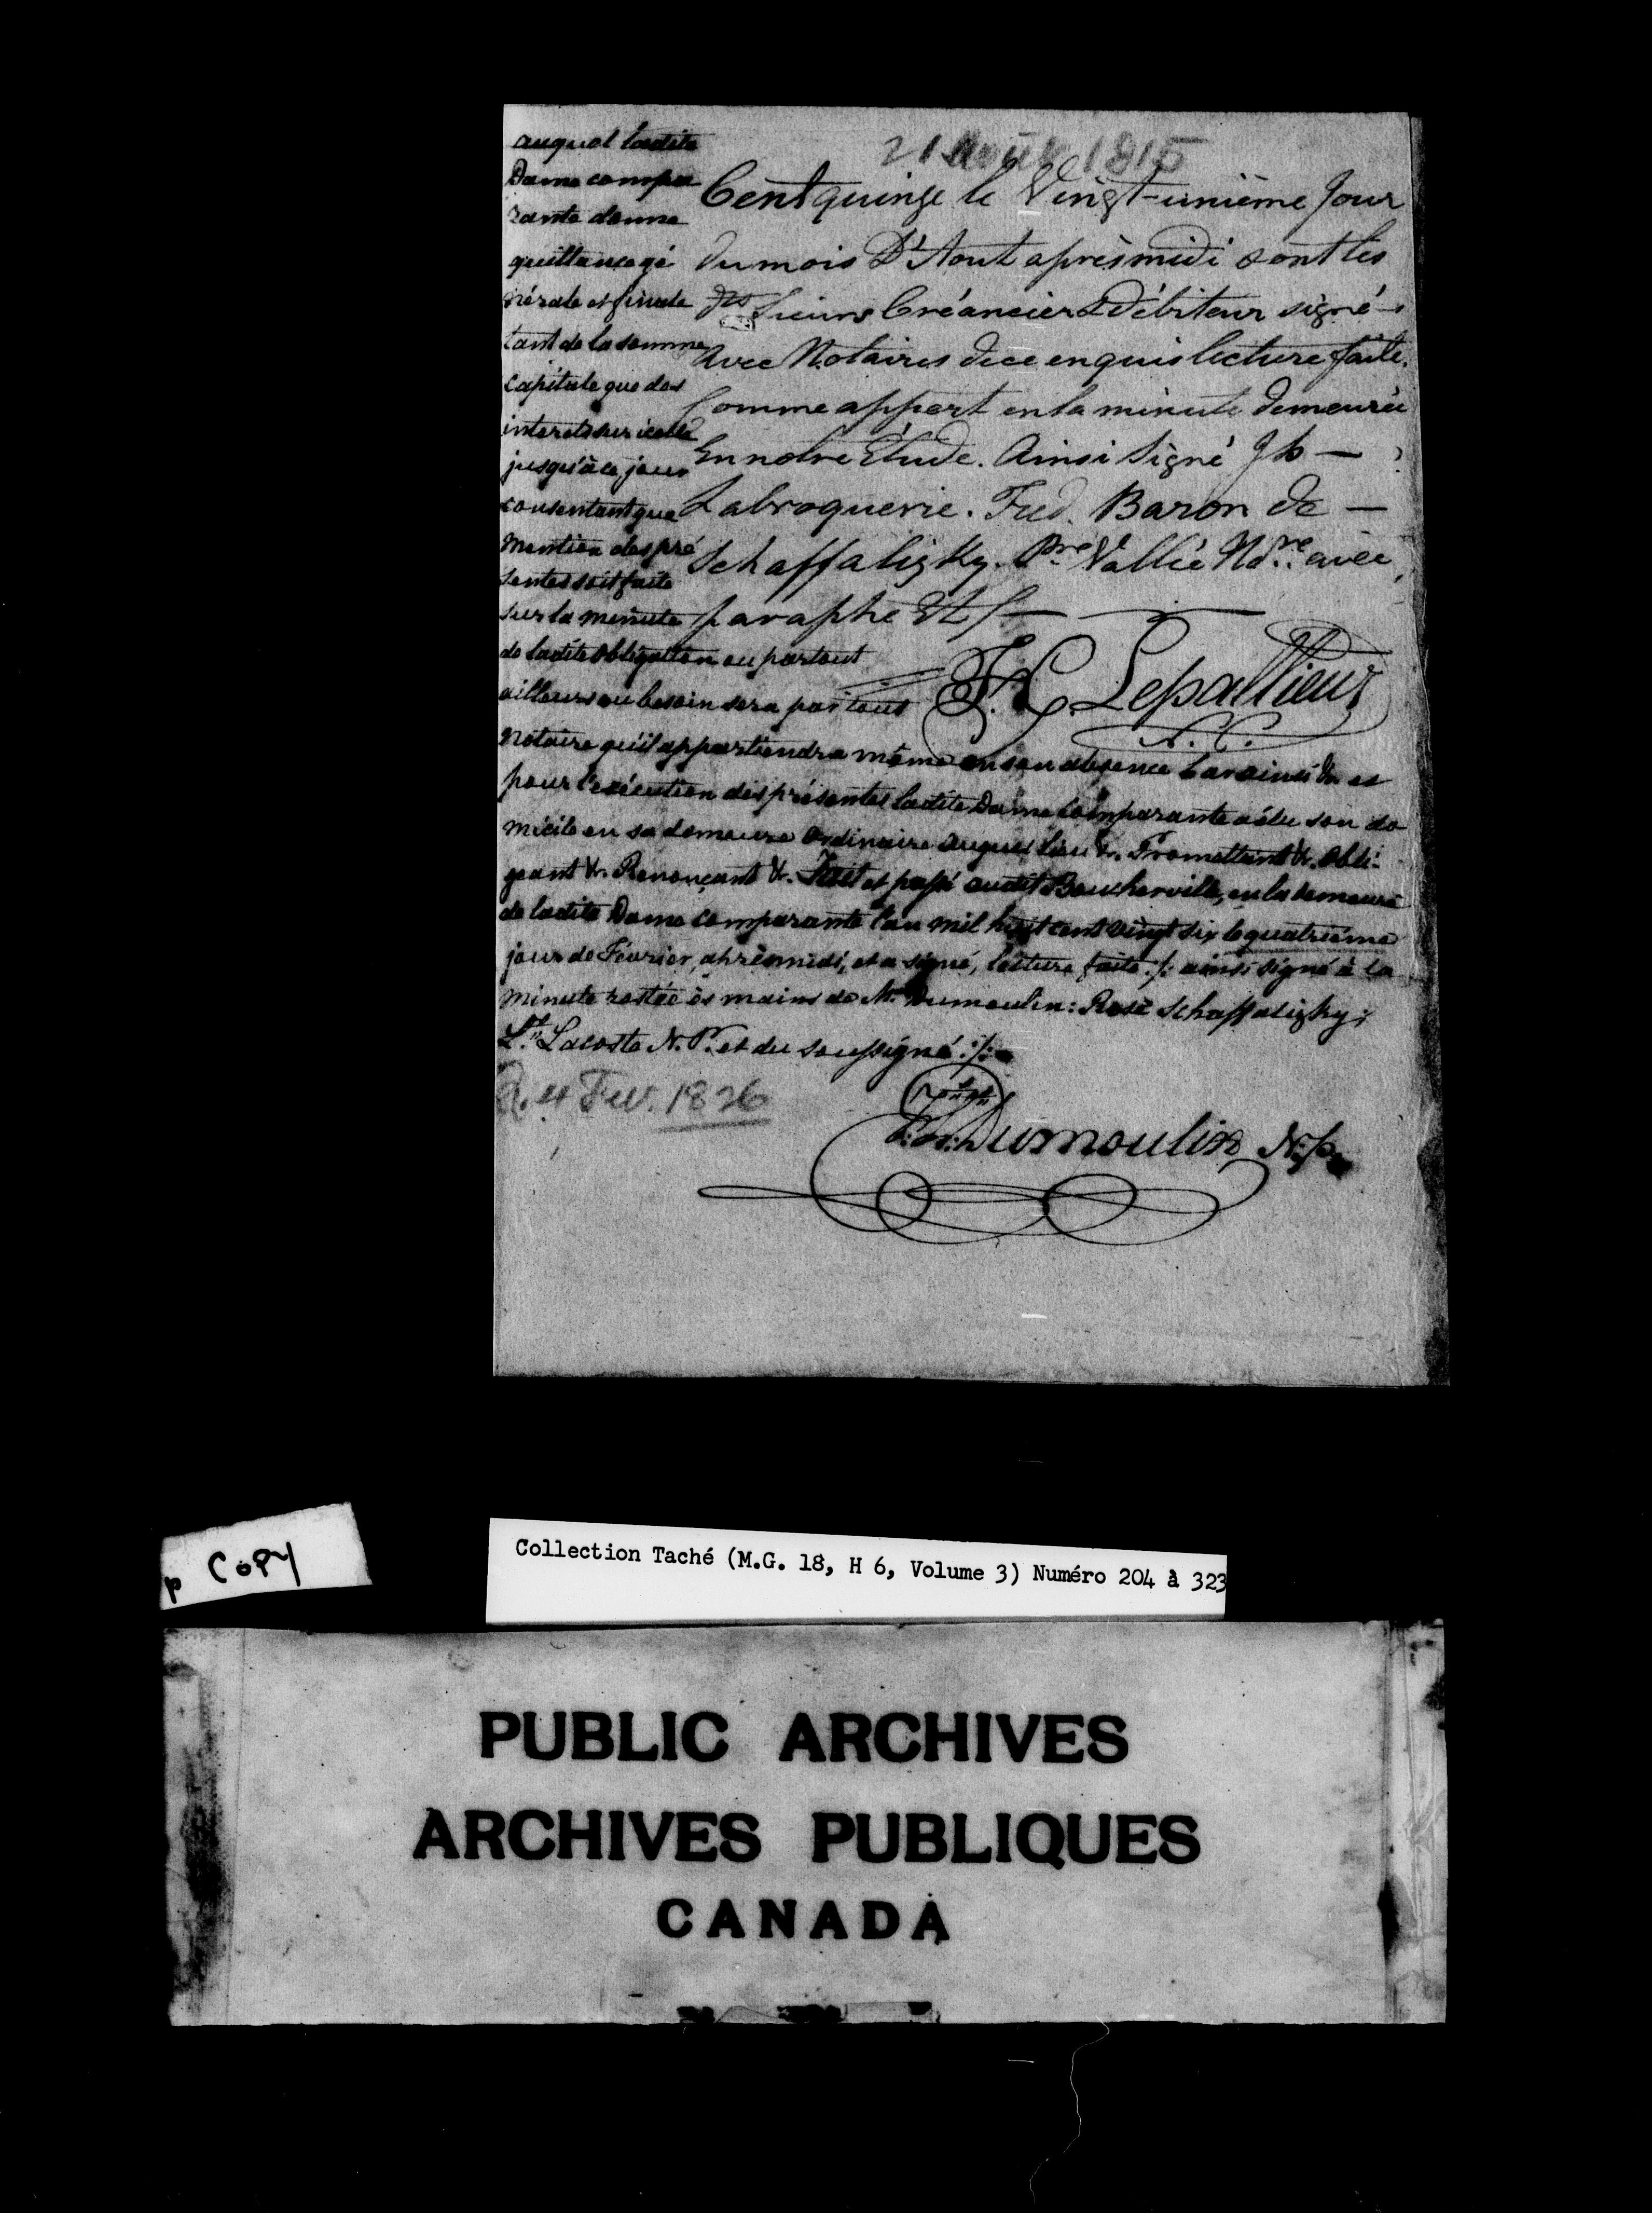 21 Août 1815
Cent quinze le Vingt-unième Jour
du mois D'Aout après midi sont les
dts Sieurs Créancier & Débiteur signé
avec Notaires de ce enquis lecture faite.
Comme appert en la minute demeurée
En notre Étude. Ainsi Signé Jh —
Labroquerie. Fred. Baron de —
Schaffalizky. Pre Vallée Nore avec
paraphe
F. L. Lepallieur
N. P.
auquel ladite
Dame compa
rante donne
quittance gé
nérale et finale
tant de la somme
capitale que des
interets sur icelle
jusqu'à ce jour
consentant que
Mention des pré
sentes soit faite
sur la minute
de ladite Obligation ou partout
ailleurs ou besoin sera par tout
Notaire qu'il appartiendra même en son absence Car ainsi &c et
pour l'exécution des présentes ladite Dame Comparante a élu son do
micile en sa demeure Ordinaire auquel lieu &c. Promettant &c. Obli-
geant &c. Renonçant &c. Fait et passé audit Boucherville, en la demeure
de ladite Dame Comparante l'an mil huit cent vingt six le quatrième
jour de Février, après midi, et a signé, lecture faite ./: ainsi signé à la
minute restée ès mains de Mr Dumoulin: Rose Schaffalizky;
Ls Lacoste N. P. et du soussigné :/:
Q. 4 Fev. 1826
Dumoulin N.p.
p COPY
Collection Taché (M.G. 18, H 6, Volume 3) Numéro 204 à 323
PUBLIC ARCHIVES
ARCHIVES PUBLIQUES
CANADA